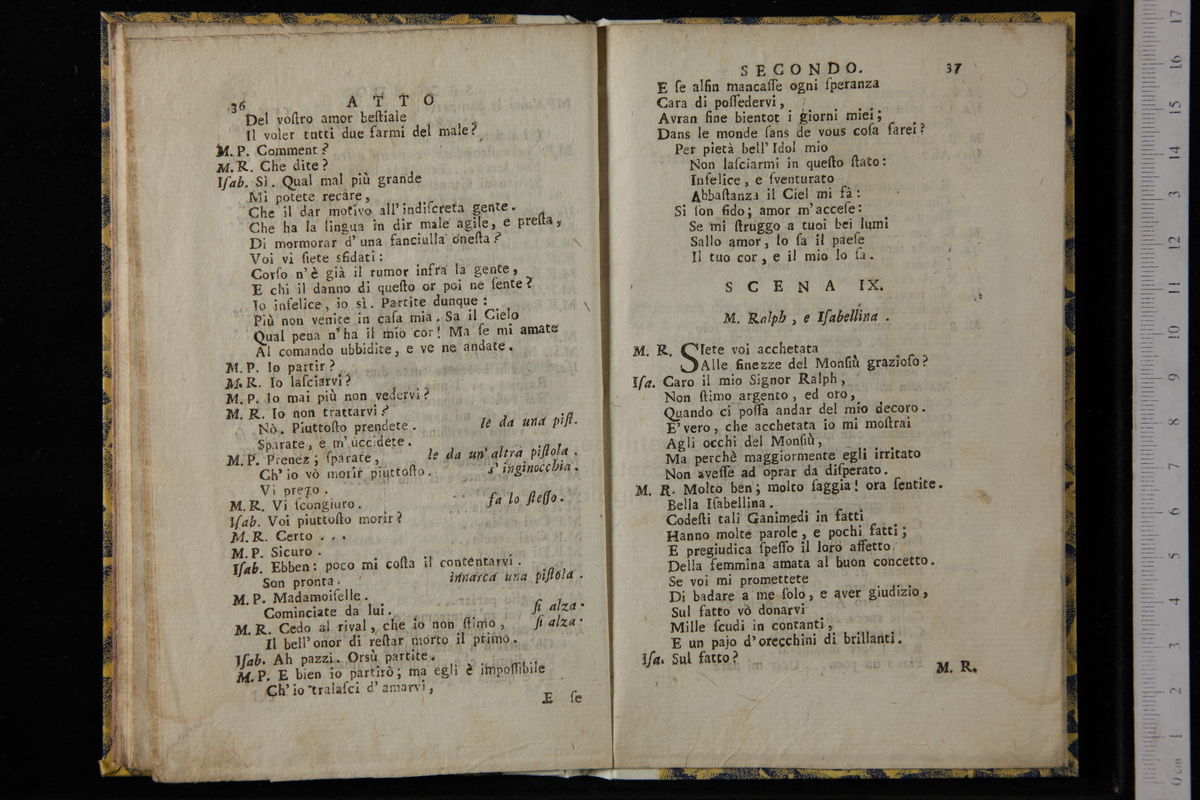 36 ATTO
Del voſtro amor beſtiale
Il voler tutti due farmi del male?
M. P. Comment?
M. R. Che dite?
Iſab. Sì. Qual mal più grande
Mi potete recare,
Che il dar motivo all'indiſcreta gente.
Che ha la lingua in dir male agile, e preſta,
Di mormorar d'una fanciulla oneſta?
Voi vi ſiete sfidati:
Corſo n'è già il rumor infra la gente,
E chi il danno di queſto or poi ne ſente?
Io infelice, io sì. Partite dunque:
Più non venite in caſa mia. Sa il Cielo
Qual pena n'ha il mio cor! Ma ſe mi amate
Al comando ubbidite, e ve ne andate.
M. P. Io partir?
M. R. Io laſciarvi?
M. P. Io mai più non vedervi?
M. R. Io non trattarvi?
Nò. Piuttoſto prendete. le da una piſt.
Sparate, e m'uccidete.
M. P. Prenez; ſparate, le da un'altra piſtola.
Ch'io vò morir piuttoſto. s'inginocchia.
Vi prego.
M. R. Vi ſcongiuro. fa lo ſteſſo.
Iſab. Voi piuttoſto morir?
M. R. Certo ...
M. P. Sicuro.
Iſab. Ebben: poco mi coſta il contentarvi.
Son pronta. innarca una piſtola.
M. P. Madamoiſelle.
Cominciate da lui. ſi alza.
M. R. Cedo al rival, che io non ſtimo, ſi alza.
Il bell'onor di reſtar morto il primo.
Iſab. Ah pazzi. Orsù partite.
M. P. E bien io partirò; ma egli è impoſſibile
Ch'io tralaſci d'amarvi,
E ſe
SECONDO. 37
E ſe alfin mancaſſe ogni ſperanza
Cara di poſſedervi,
Avran fine bientot i giorni miei;
Dans le monde ſans de vous coſa farei?
Per pietà bell'Idol mio
Non laſciarmi in queſto ſtato:
Infelice, e ſventurato
Abbaſtanza il Ciel mi fà:
Si ſon fido; amor m'acceſe:
Se mi ſtruggo a tuoi bei lumi
Sallo amor, lo ſa il paeſe
Il tuo cor, e il mio lo ſa.
SCENA IX.
M. Ralph, e Iſabellina.
M. R. SIete voi acchetata
Alle finezze del Monſiù grazioſo?
Iſa. Caro il mio Signor Ralph,
Non ſtimo argento, ed oro,
Quando ci poſſa andar del mio decoro.
E' vero, che acchetata io mi moſtrai
Agli occhi del Monſiù,
Ma perchè maggiormente egli irritato
Non aveſſe ad oprar da diſperato.
M. R. Molto ben; molto ſaggia! ora ſentite.
Bella Iſabellina.
Codeſti tali Ganimedi in fatti
Hanno molte parole, e pochi fatti;
E pregiudica ſpeſſo il loro affetto
Della femmina amata al buon concetto.
Se voi mi promettete
Di badare a me ſolo, e aver giudizio,
Sul fatto vò donarvi
Mille ſcudi in contanti,
E un pajo d'orecchini di brillanti.
Iſa. Sul fatto?
M. R.
0 cm 1 2 3 4 5 6 7 8 9 10 11 12 13 14 15 16 17